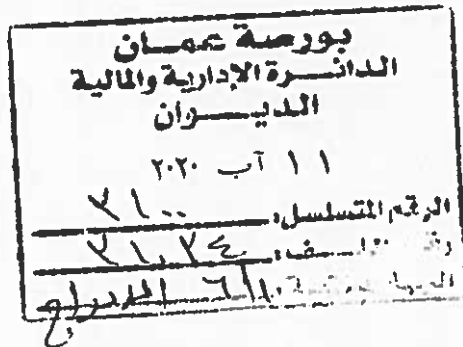 بورصة عمان
الدائرة الإدارية والمالية
الديوان
١١ آب ٢٠٢٠
الرقم المتسلسل: ٣١٠٠
رقم الملف: ٣١٠٣٤
الإدراج